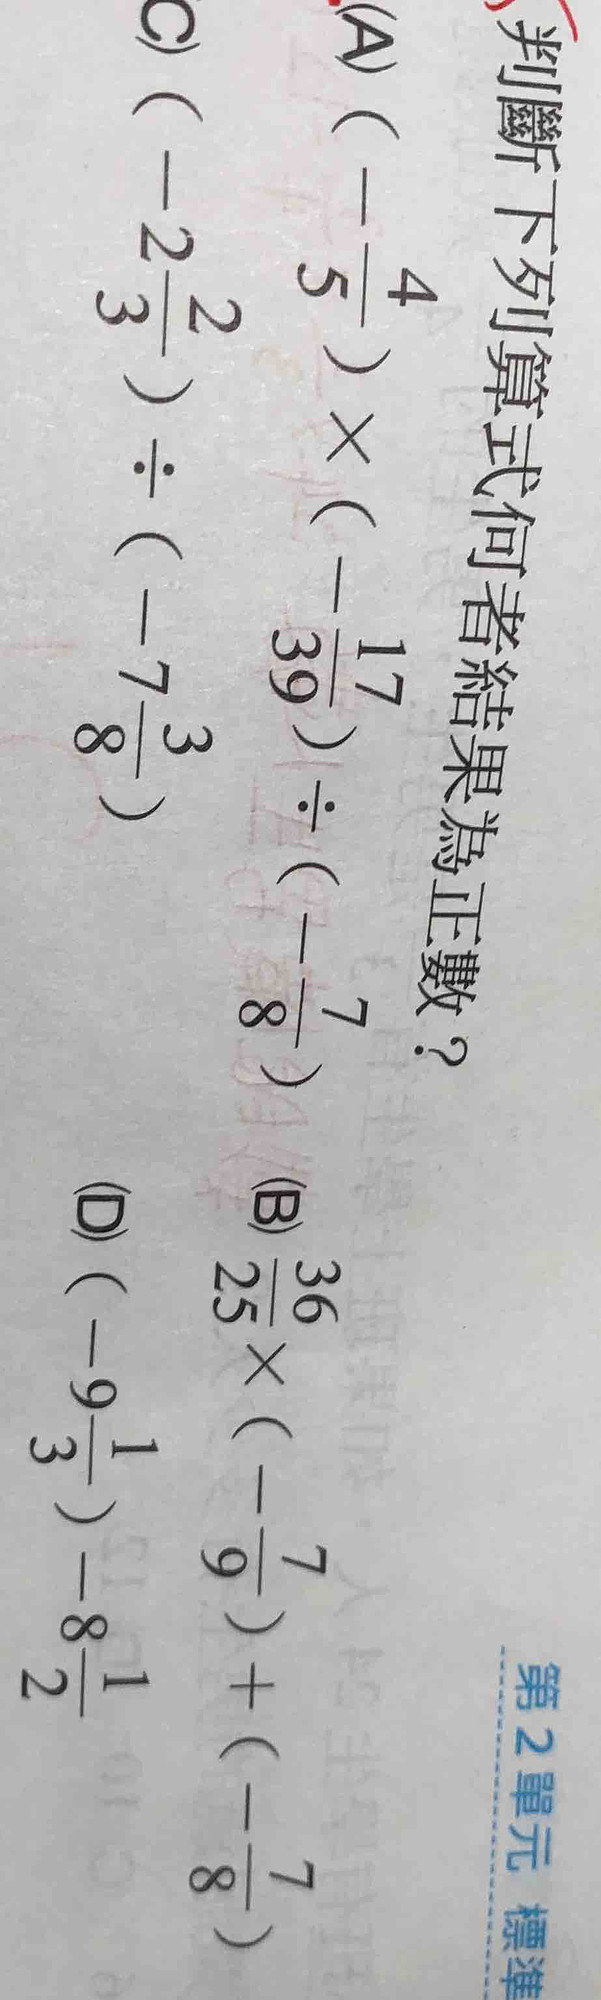 第2單元 標準
判斷下列算式何者結果為正數？
(A) (－4/5)×(－17/39)÷(－7/8) (B) 36/25×(－7/9)＋(－7/8)
(C) (－2 2/3)÷(－7 3/8) (D) (－9 1/3)－8 1/2